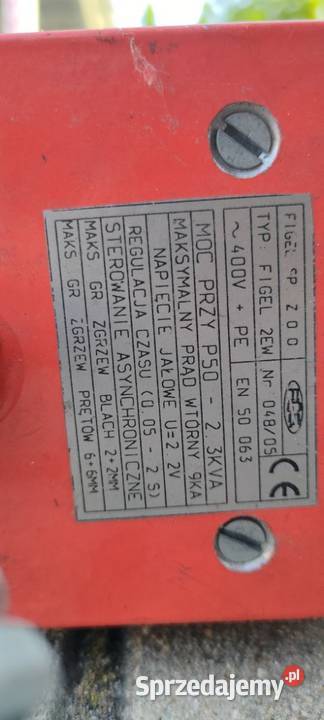 FIGEL SP Z O O
TYP: FIGEL 2EW Nr 048/05
~400V + PE EN 50 063
CE
MOC PRZY P50 - 2.3KVA
MAKSYMALNY PRĄD WTÓRNY 9KA
NAPIĘCIE JAŁOWE U=2.2V
REGULACJA CZASU (0.05 - 2 S)
STEROWANIE ASYNCHRONICZNE
MAKS GR ZGRZEW BLACH 2+2MM
MAKS GR ZGRZEW PRĘTÓW 6+6MM
Sprzedajemy.pl